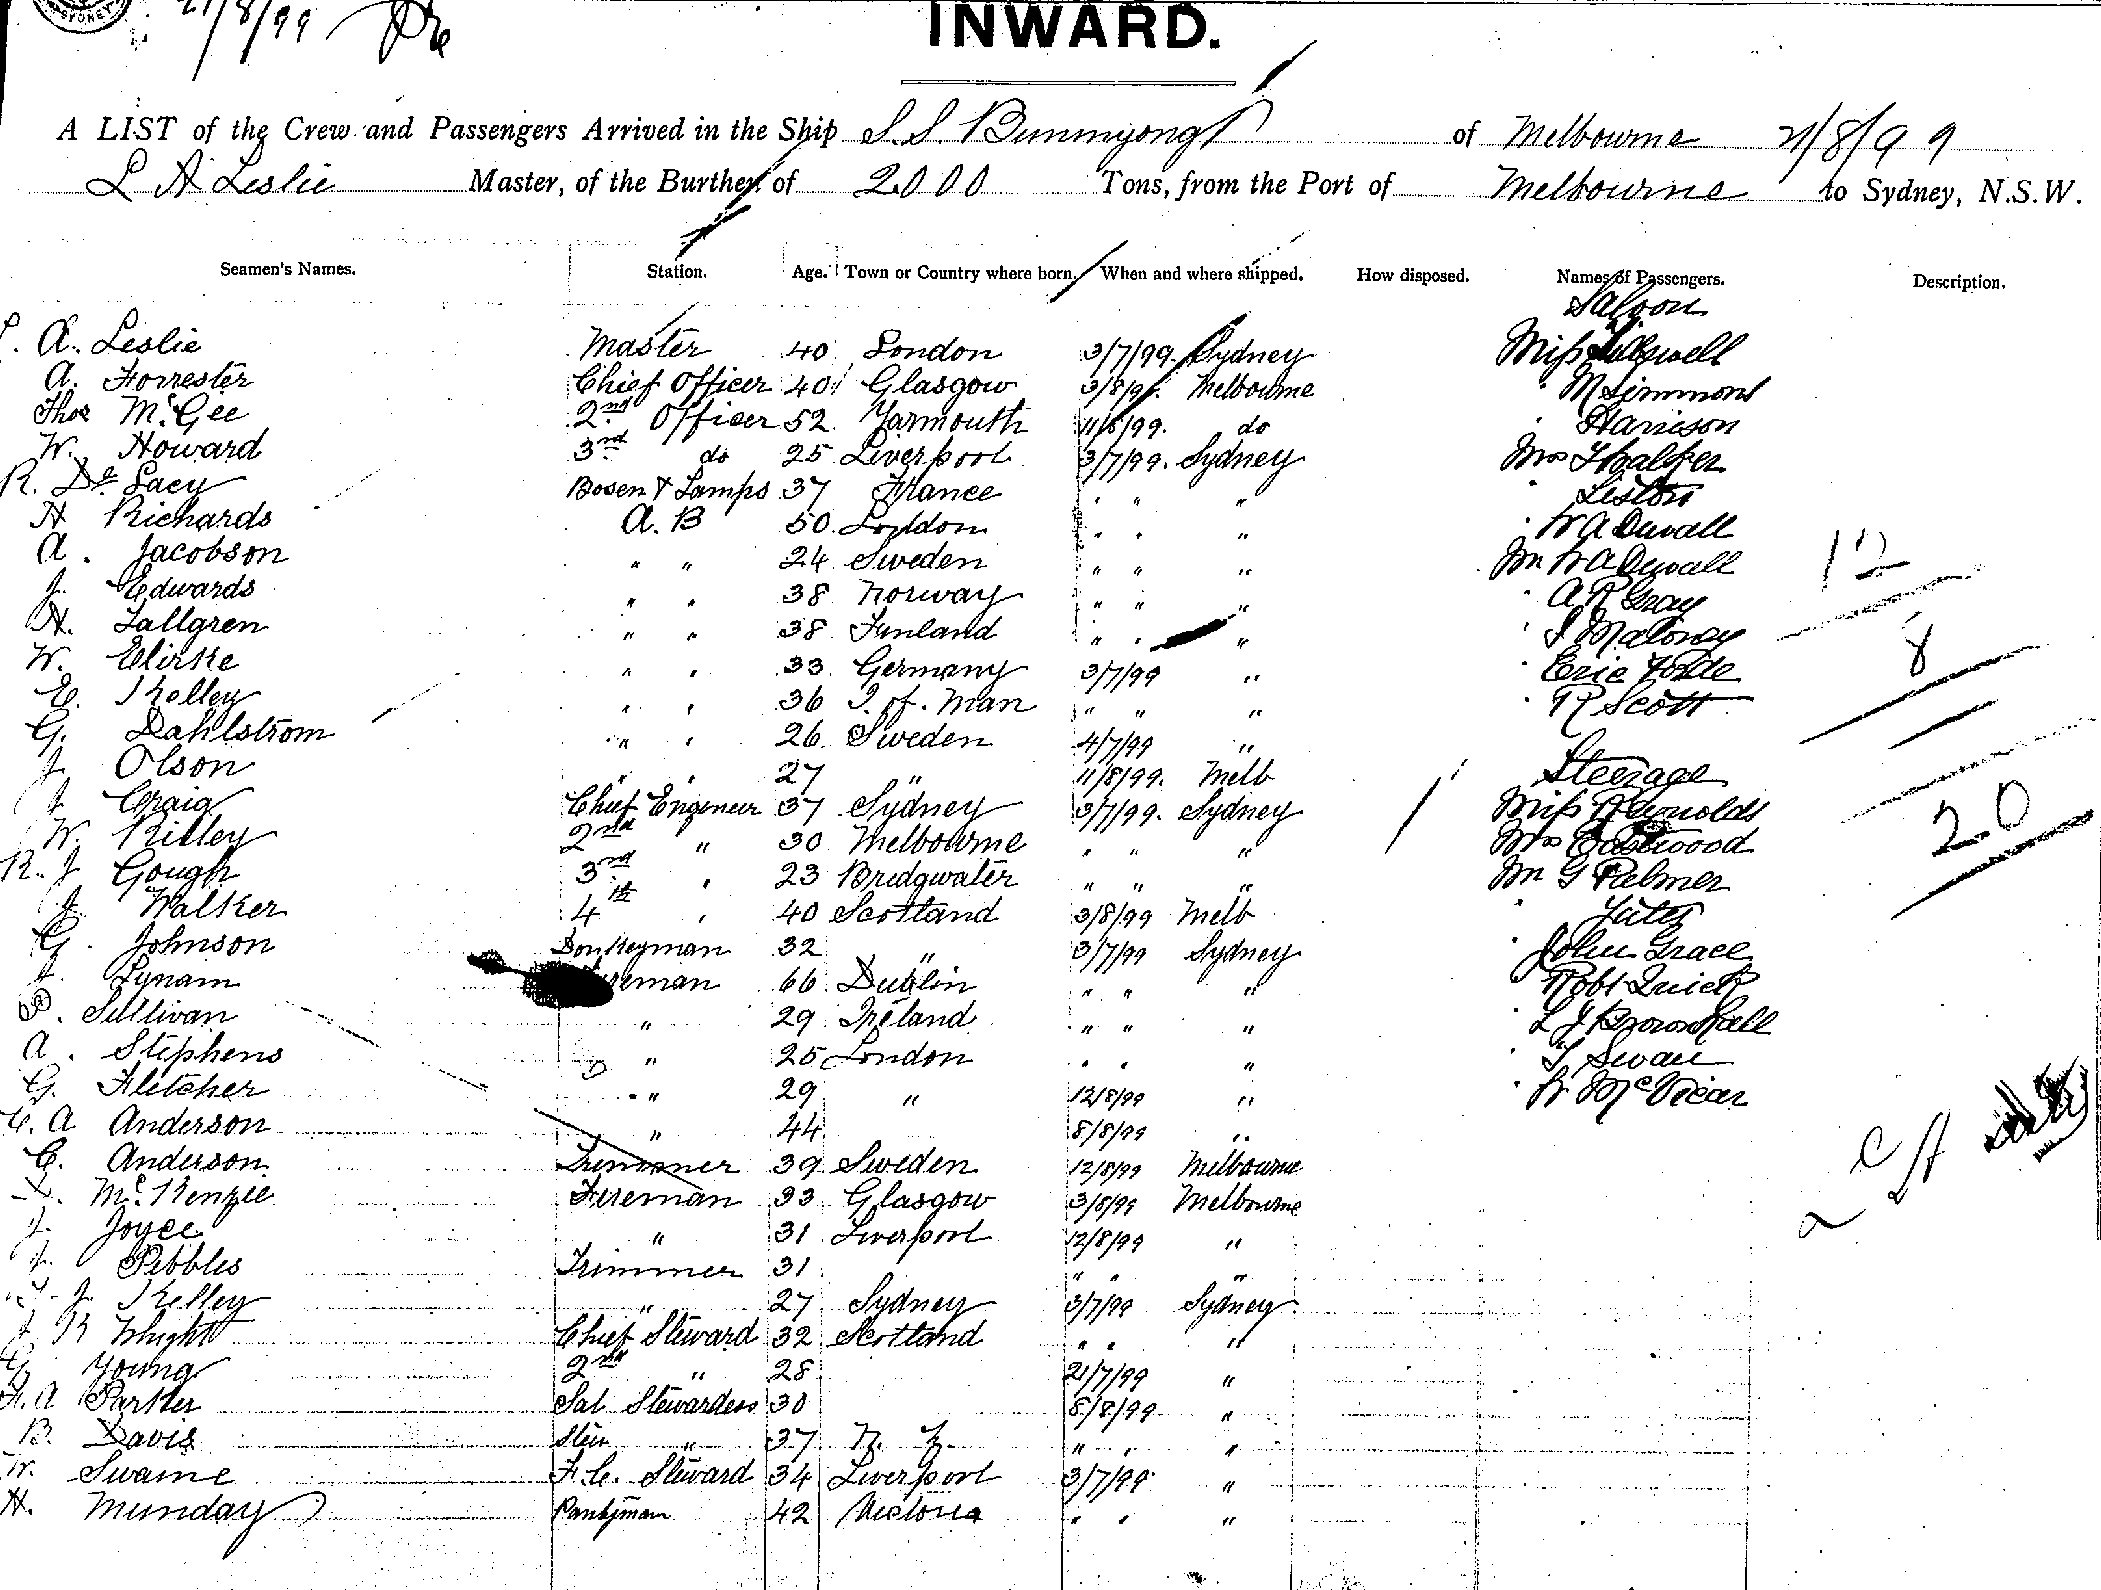 SYDNEY
21/8/99
INWARD.
A LIST of the Crew and Passengers Arrived in the Ship S.S. Buninyong of Melbourne 21/8/99
L A Leslie Master, of the Burthen of 2000 Tons, from the Port of Melbourne to Sydney, N.S.W.
Seamen's Names. Station. Age. Town or Country where born. When and where shipped. How disposed. Names of Passengers. Description.
Saloon
L. A. Leslie Master 40 London 3/7/99. Sydney Miss
A. Forrester Chief Officer 40 Glasgow 3/8/99. Melbourne " M Simmons
Thos McGee 2nd Officer 52 Yarmouth 11/8/99. do " Harrison
W. Howard 3rd do 25 Liverpool 3/7/99. Sydney Mrs Thalker
R. De Lacy Bosen & Lamps 37 France " " " " Liston
H Richards A. B 50 London " " " " W A Duvall
A. Jacobson " " 24 Sweden " " " Mr W A Duvall
J. Edwards " " 38 Norway " " " " A R Gray
H. Tallgren " " 38 Finland " " " " J Maloney
W. Elirke " " 33 Germany 3/7/99 " " Eric Forde
E. Kelley " " 36 I. of. Man " " " " R Scott
G. Dahlstrom " " 26 Sweden 4/7/99 "
J. Olson " " 27 " 11/8/99. Melb Steerage
J Craig Chief Engineer 37 Sydney 3/7/99. Sydney Miss Reynolds
W. Rilley 2nd " 30 Melbourne " " " Mrs Eastwood
R. J Gough 3rd " 23 Bridgwater " " " Mr G Palmer
J. Walker 4th " 40 Scotland 3/8/99 Melb "
G. Johnson Donkeyman 32 " 3/7/99 Sydney " John Grace
J. Lynam Fireman 66 Dublin " " " Robt Quick
P. Sullivan " 29 Ireland " " " L J Brownhall
A. Stephens " 25 London " " " " T Swan
G. Fletcher " 29 " 12/8/99 " " W McVicar
C. A Anderson " 44 8/8/99 "
C. Anderson Trimmer 39 Sweden 12/8/99 Melbourne
D. McKenzie Fireman 33 Glasgow 3/8/99 Melbourne
J. Joyce " 31 Liverpool 12/8/99 "
J. Pebbles Trimmer 31 " " "
T. J. Kelley " 27 Sydney 3/7/99 Sydney
J R Whight Chief Steward 32 Scotland " " "
G Young 2nd " 28 21/7/99 "
H. A Parker Sal Stewardess 30 8/8/99 "
B. Davis Steer " 37 N. Z. " " "
W. Swaine F. C. Steward 34 Liverpool 3/7/99 "
H. Munday Pantyman 42 Victoria " " "
12
8
20